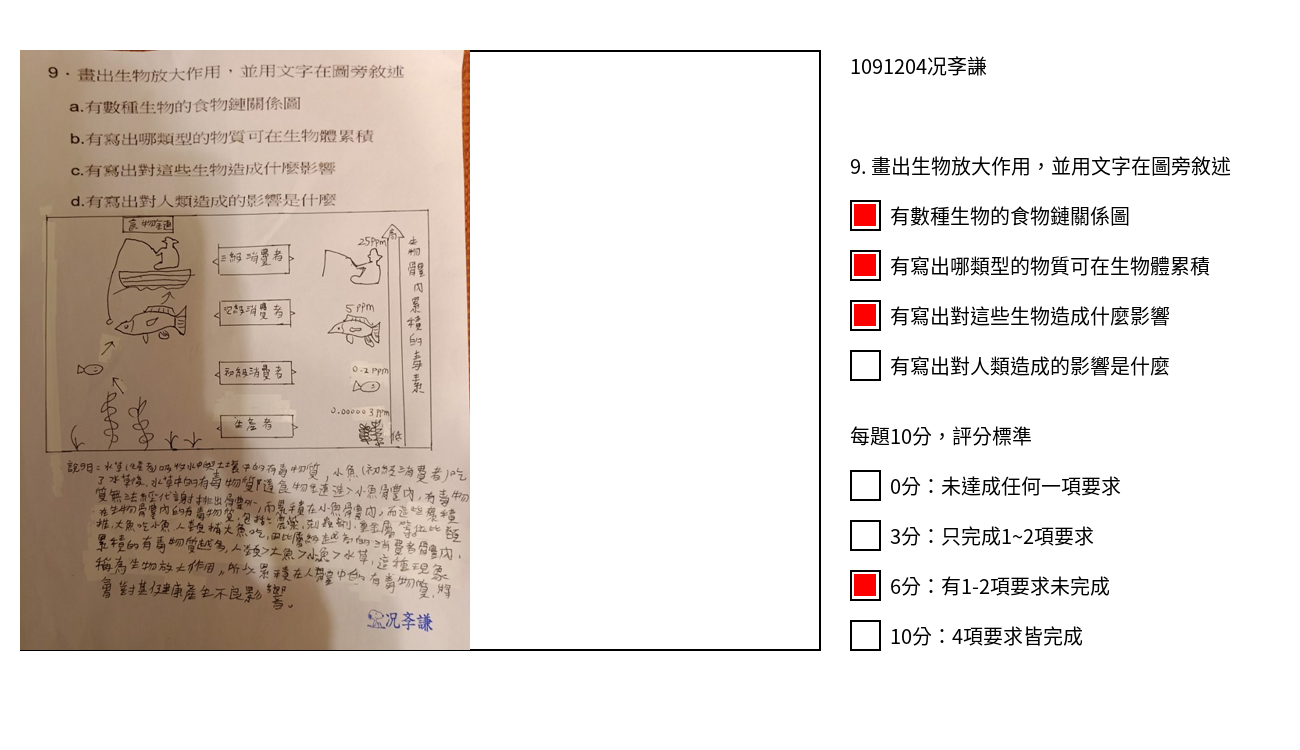 9.畫出生物放大作用，並用文字在圖旁敘述
a.有數種生物的食物鏈關係圖
b.有寫出哪類型的物質可在生物體累積
c.有寫出對這些生物造成什麼影響
d.有寫出對人類造成的影響是什麼
食物鏈
三級消費者
25ppm
高
生物體內累積的毒素
次級消費者
5ppm
初級消費者
0.2ppm
生產者
0.000003ppm
低
說明：水草(生產者)吸收水中與土壤中的有毒物質，小魚(初級消費者)吃
了水草後，水草中的有毒物質隨食物
質無法經代謝排出身體外，而累積在小魚體內，而這些累積
在生物體內的有毒物質，包括：農藥、殺蟲劑、重金屬等。以此類
推，大魚吃小魚，人類捕大魚吃，因此層級越高的消費者體內，
累積的有毒物質越多，人類>大魚>小魚>水草，這種現象
稱為生物放大作用，所以累積在人體當中的有毒物質，將
會對其健康產生不良影響。
况孝謙
1091204况孝謙
9. 畫出生物放大作用，並用文字在圖旁敘述
有數種生物的食物鏈關係圖
有寫出哪類型的物質可在生物體累積
有寫出對這些生物造成什麼影響
有寫出對人類造成的影響是什麼
每題10分，評分標準
0分：未達成任何一項要求
3分：只完成1~2項要求
6分：有1-2項要求未完成
10分：4項要求皆完成